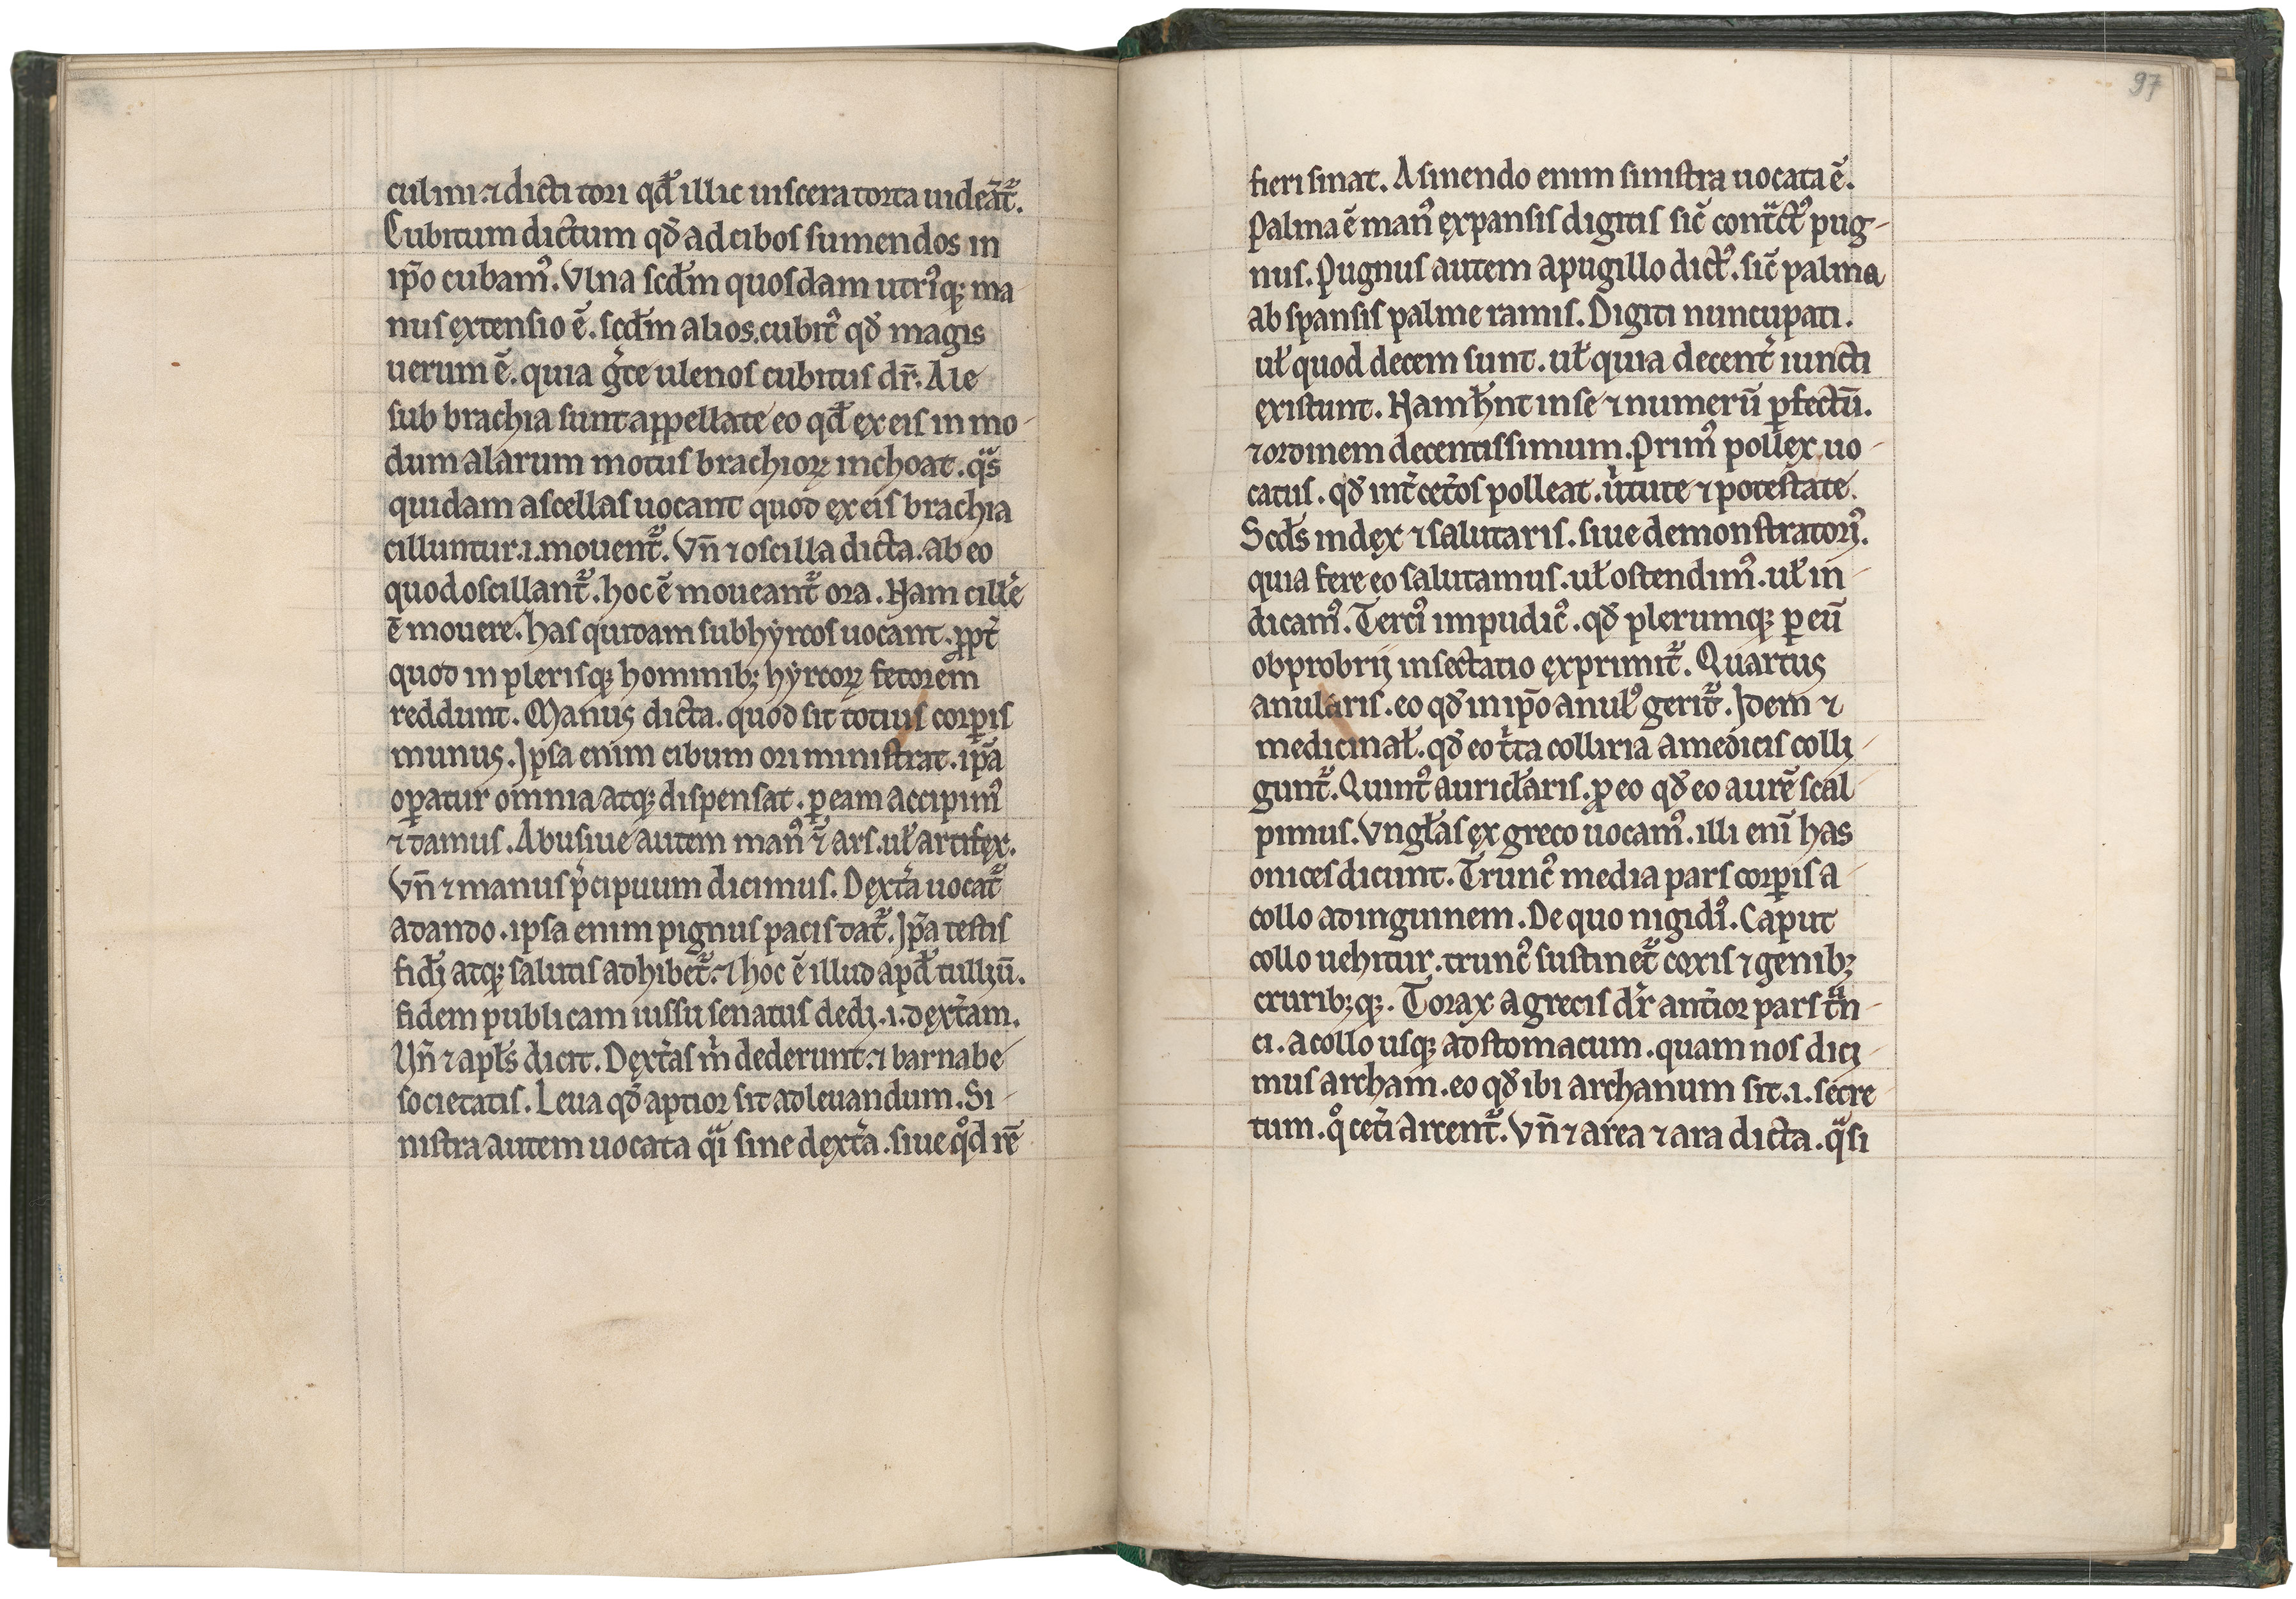 culini. ⁊ dicti tori qđ illic uiscera torta uideãt᷑.
Cubitum dictum qđ ad cibos sumendos in
ip̃o cubamꝰ. Vlna scđm quosdam utriꝰqꝫ ma
nus ęxtensio ē. scđm alios. cubitꝰ qđ magis
uerum ē. quia gͥce ulenos cubitus dr̃. Ale
sub brachia sunt appellate eo qđ ęx eis in mo-
dum alarum motus brachioꝝ inchoat. qͣs
quidam ascellas uocant quod ęx eis brachia
cilluntur .i. mouent᷑. Vñ ⁊ oscilla dicta. ab eo
quod oscillant᷑. hoc ē moueant᷑ ora. Nam cillẻ
ē mouere. has quidam subhẏrcos uocant. ꝓpt̉
quod in plerisqꝫ hominibꝫ hẏrcoꝝ fetorem
reddunt. Manus dicta. quod sit totius corꝑis
munus. Ipsa enim cibum ori ministrat. ip̃a
oꝑatur omnia atqꝫ dispensat. ꝑ eam accipimꝰ
⁊ damus. Abusiue autem manꝰ ⁊̃ ars. uł artifęx.
Vñ ⁊ manus pͥcipuum dicimus. Dęxt̉a uocat᷑
a dando. ipsa enim pignus pacis dat᷑. Ip̃a testis
fidei atqꝫ salutis adhibet᷑. ⁊ hoc ē illud apđ tulliũ.
fidem publicam iussu senatus dedi. .i. dęxt̉am.
Vñ ⁊ apłs dicit. Dęxt̉as m̉ dederunt. ⁊ barnabe
societatis. Leua qđ aptior sit ad leuandum. Si-
nistra autem uocata qͣi sine dęxt̉a. siue qͦd rē
fieri sinat. A sinendo enim sinistra uocata ē.
Palma ē manꝰ ęxpansis digitis sic̃ cont̾ctꝰ pug-
nus. Pugnus autem a pugillo dictꝰ. sic̃ palma
ab spansis palme ramis. Digiti nuncupati.
uł quod decem sunt. uł quia decent̉ iuncti
ęxistunt. Nam hñt in se ⁊ numerũ ꝑfectũ.
⁊ ordinem decentissimum. Primꝰ pollęx uo-
catus. qđ int̉ cet̉os polleat. u̾tute ⁊ potestate.
Scđs indęx ⁊ salutaris. siue demonstratoriꝰ.
quia fere eo salutamus. uł ostendimꝰ. uł in-
dicamꝰ. Terciꝰ impudicꝰ. qđ plerumqꝫ ꝑ eũ
obprobrij insectatio ęxprimit᷑. Quartus
anularis. eo qđ in ip̃o anulꝰ gerit᷑. Idem ⁊
medicinał. qđ eo t̉ta colliria a medicis colli-
gunt᷑. Quintꝰ auricłaris. ꝓ eo qđ eo aurē scal-
pimus. Vngłas ęx greco uocamꝰ. illi eni̅ has
onices dicunt. Truncꝰ media pars corꝑis a
collo ad inguinem. De quo nigidiꝰ. Caput
collo uehitur. truncꝰ sustinet᷑ coxis ⁊ genibꝫ
cruribꝫqꝫ. Torax a grecis dr̃ ant̉ior pars tͧn-
ci. a collo usqꝫ ad stomacum. quam nos dici-
mus archam. eo qđ ibi archanum sit. .i. secre
tum. qͦ cet̉i arcent᷑. Vñ ⁊ area ⁊ ara dicta. qͣsi
97